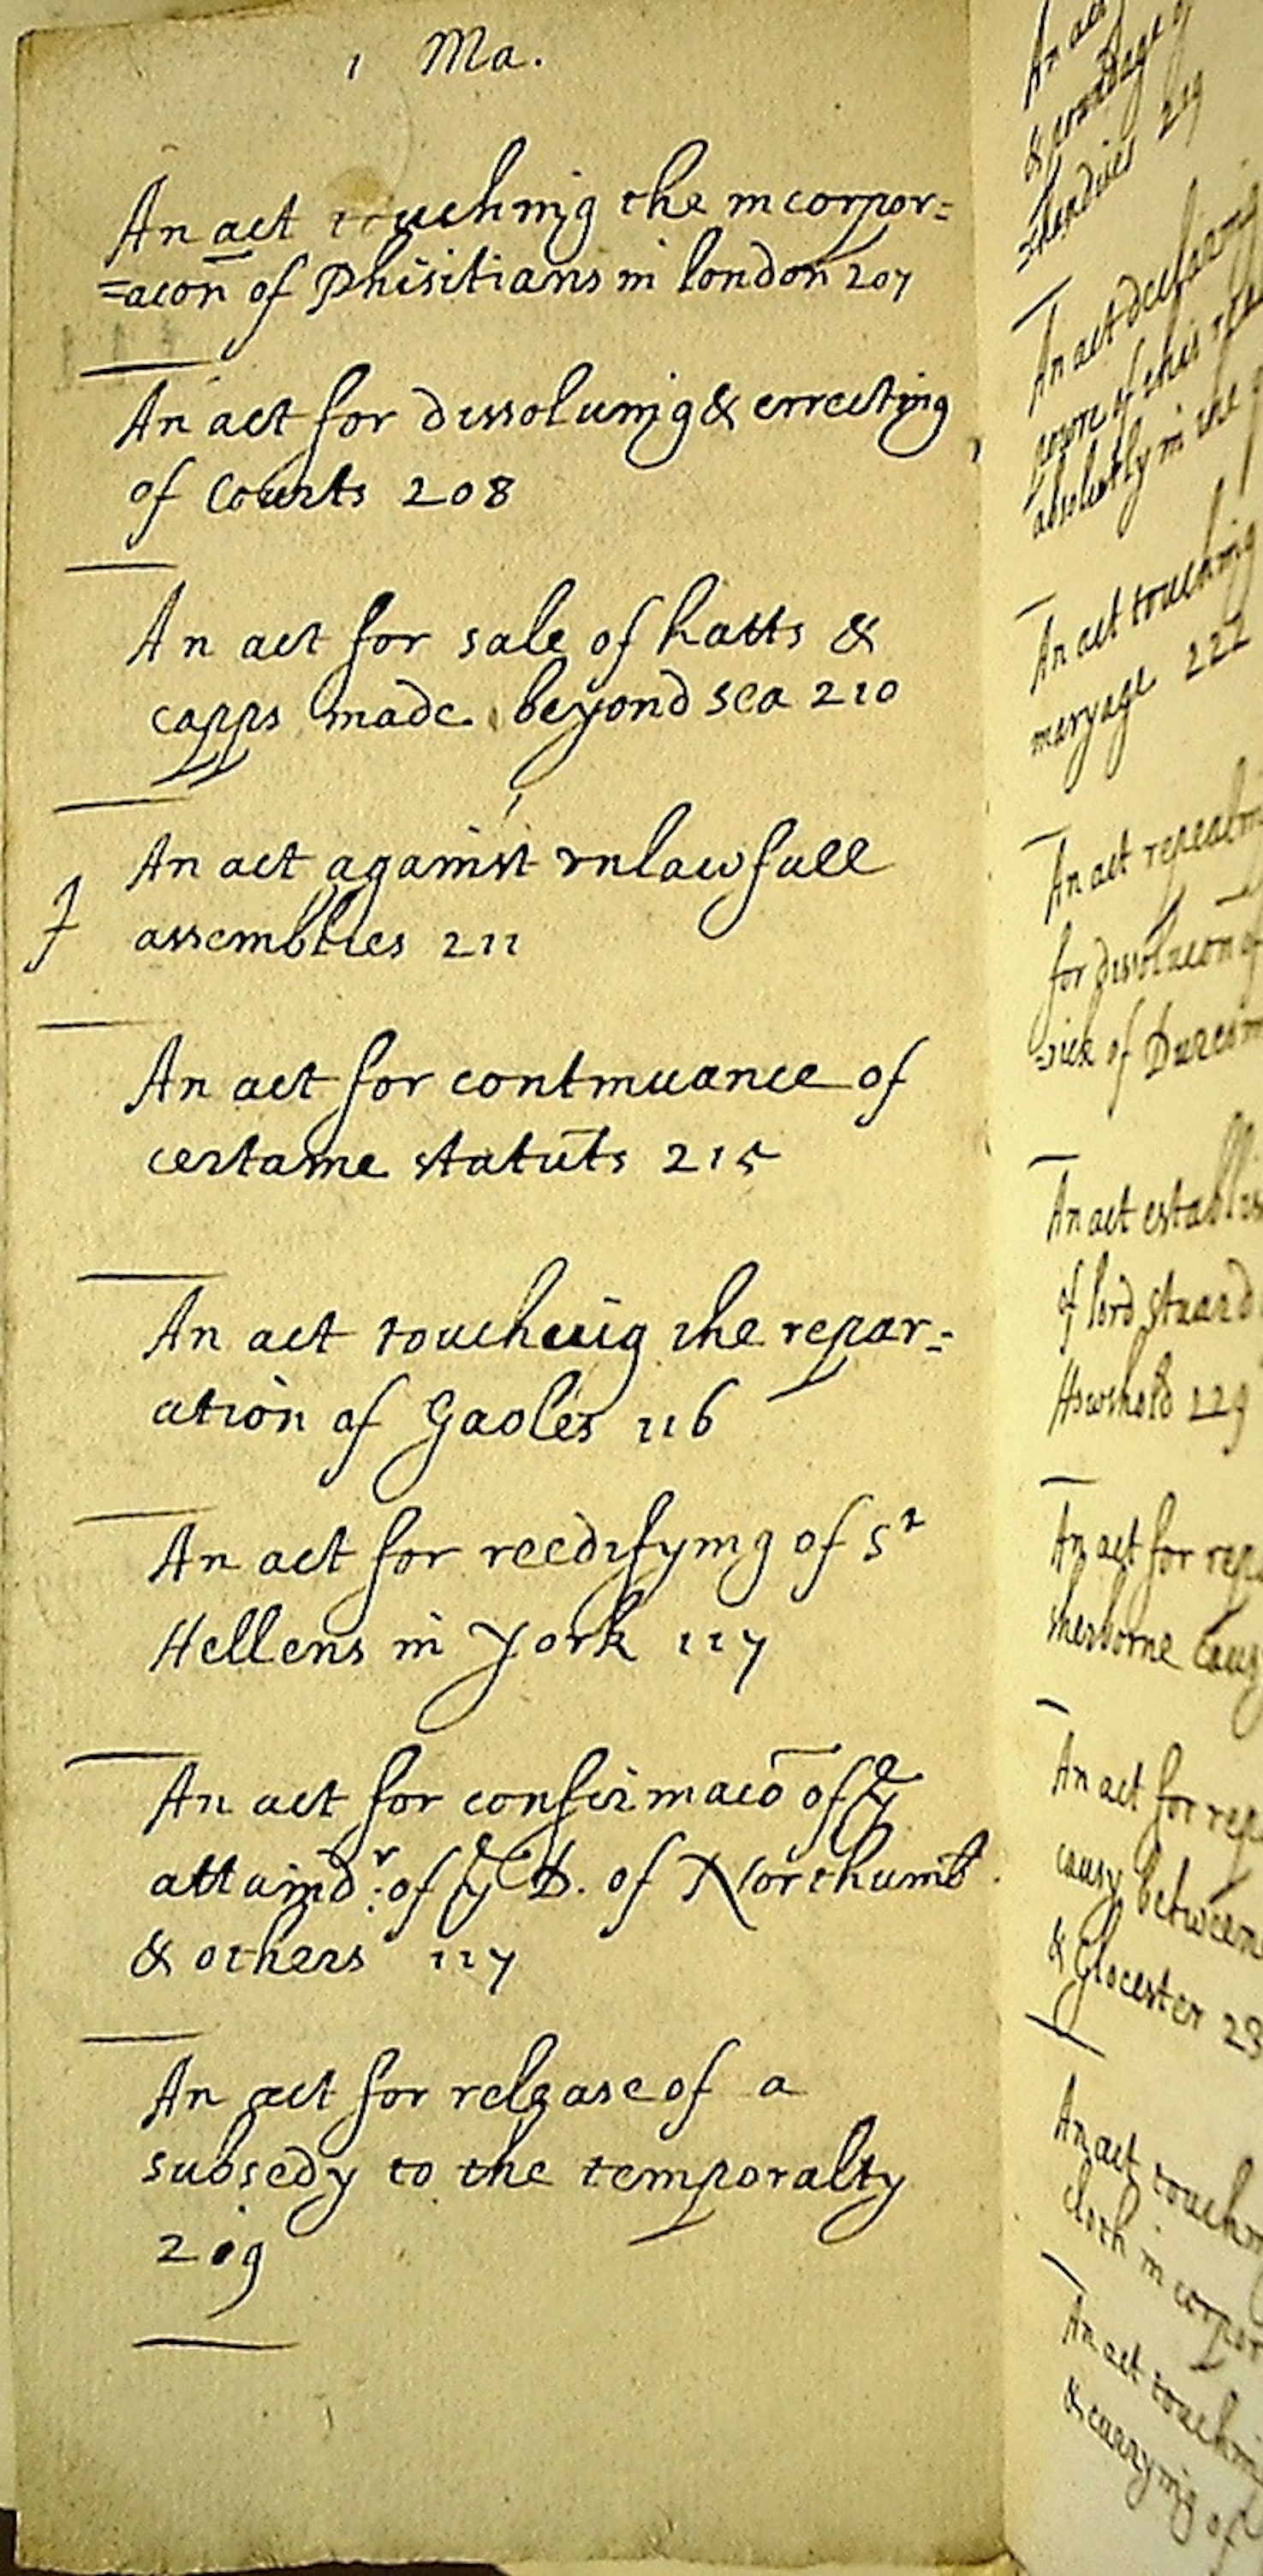 1 Ma.
An act touching the incorpor=
=acon̄ of Phisitians in london 207
An act for dissoluing & errecting
of Courts 208
An act for sale of hatts &
capps made beyond sea 210
An act against vnlawfull
assemblies 211
An act for continuance of
certaine statut̄s 215
An act touching the repar=
ation of Gaoles 116
An act for reedifying of Sᵗ
Hellens in York 117
An act for confirmacō of yᵉ
attaindʳ: of yᵉ D. of Northumb.
& others 117
An act for release of a
subsedy to the temporalty
219
An act
& pondage of
=chandises 219
An act declaring
power of this
absolutly in the
An act touching
maryage 222
An act
for dissolucon of
=rick of
An act
of lord stuard
Howshold 229
An act for
sherborne
An act for
causy between
& Glocester
An act
cloth in
An act
& currying of